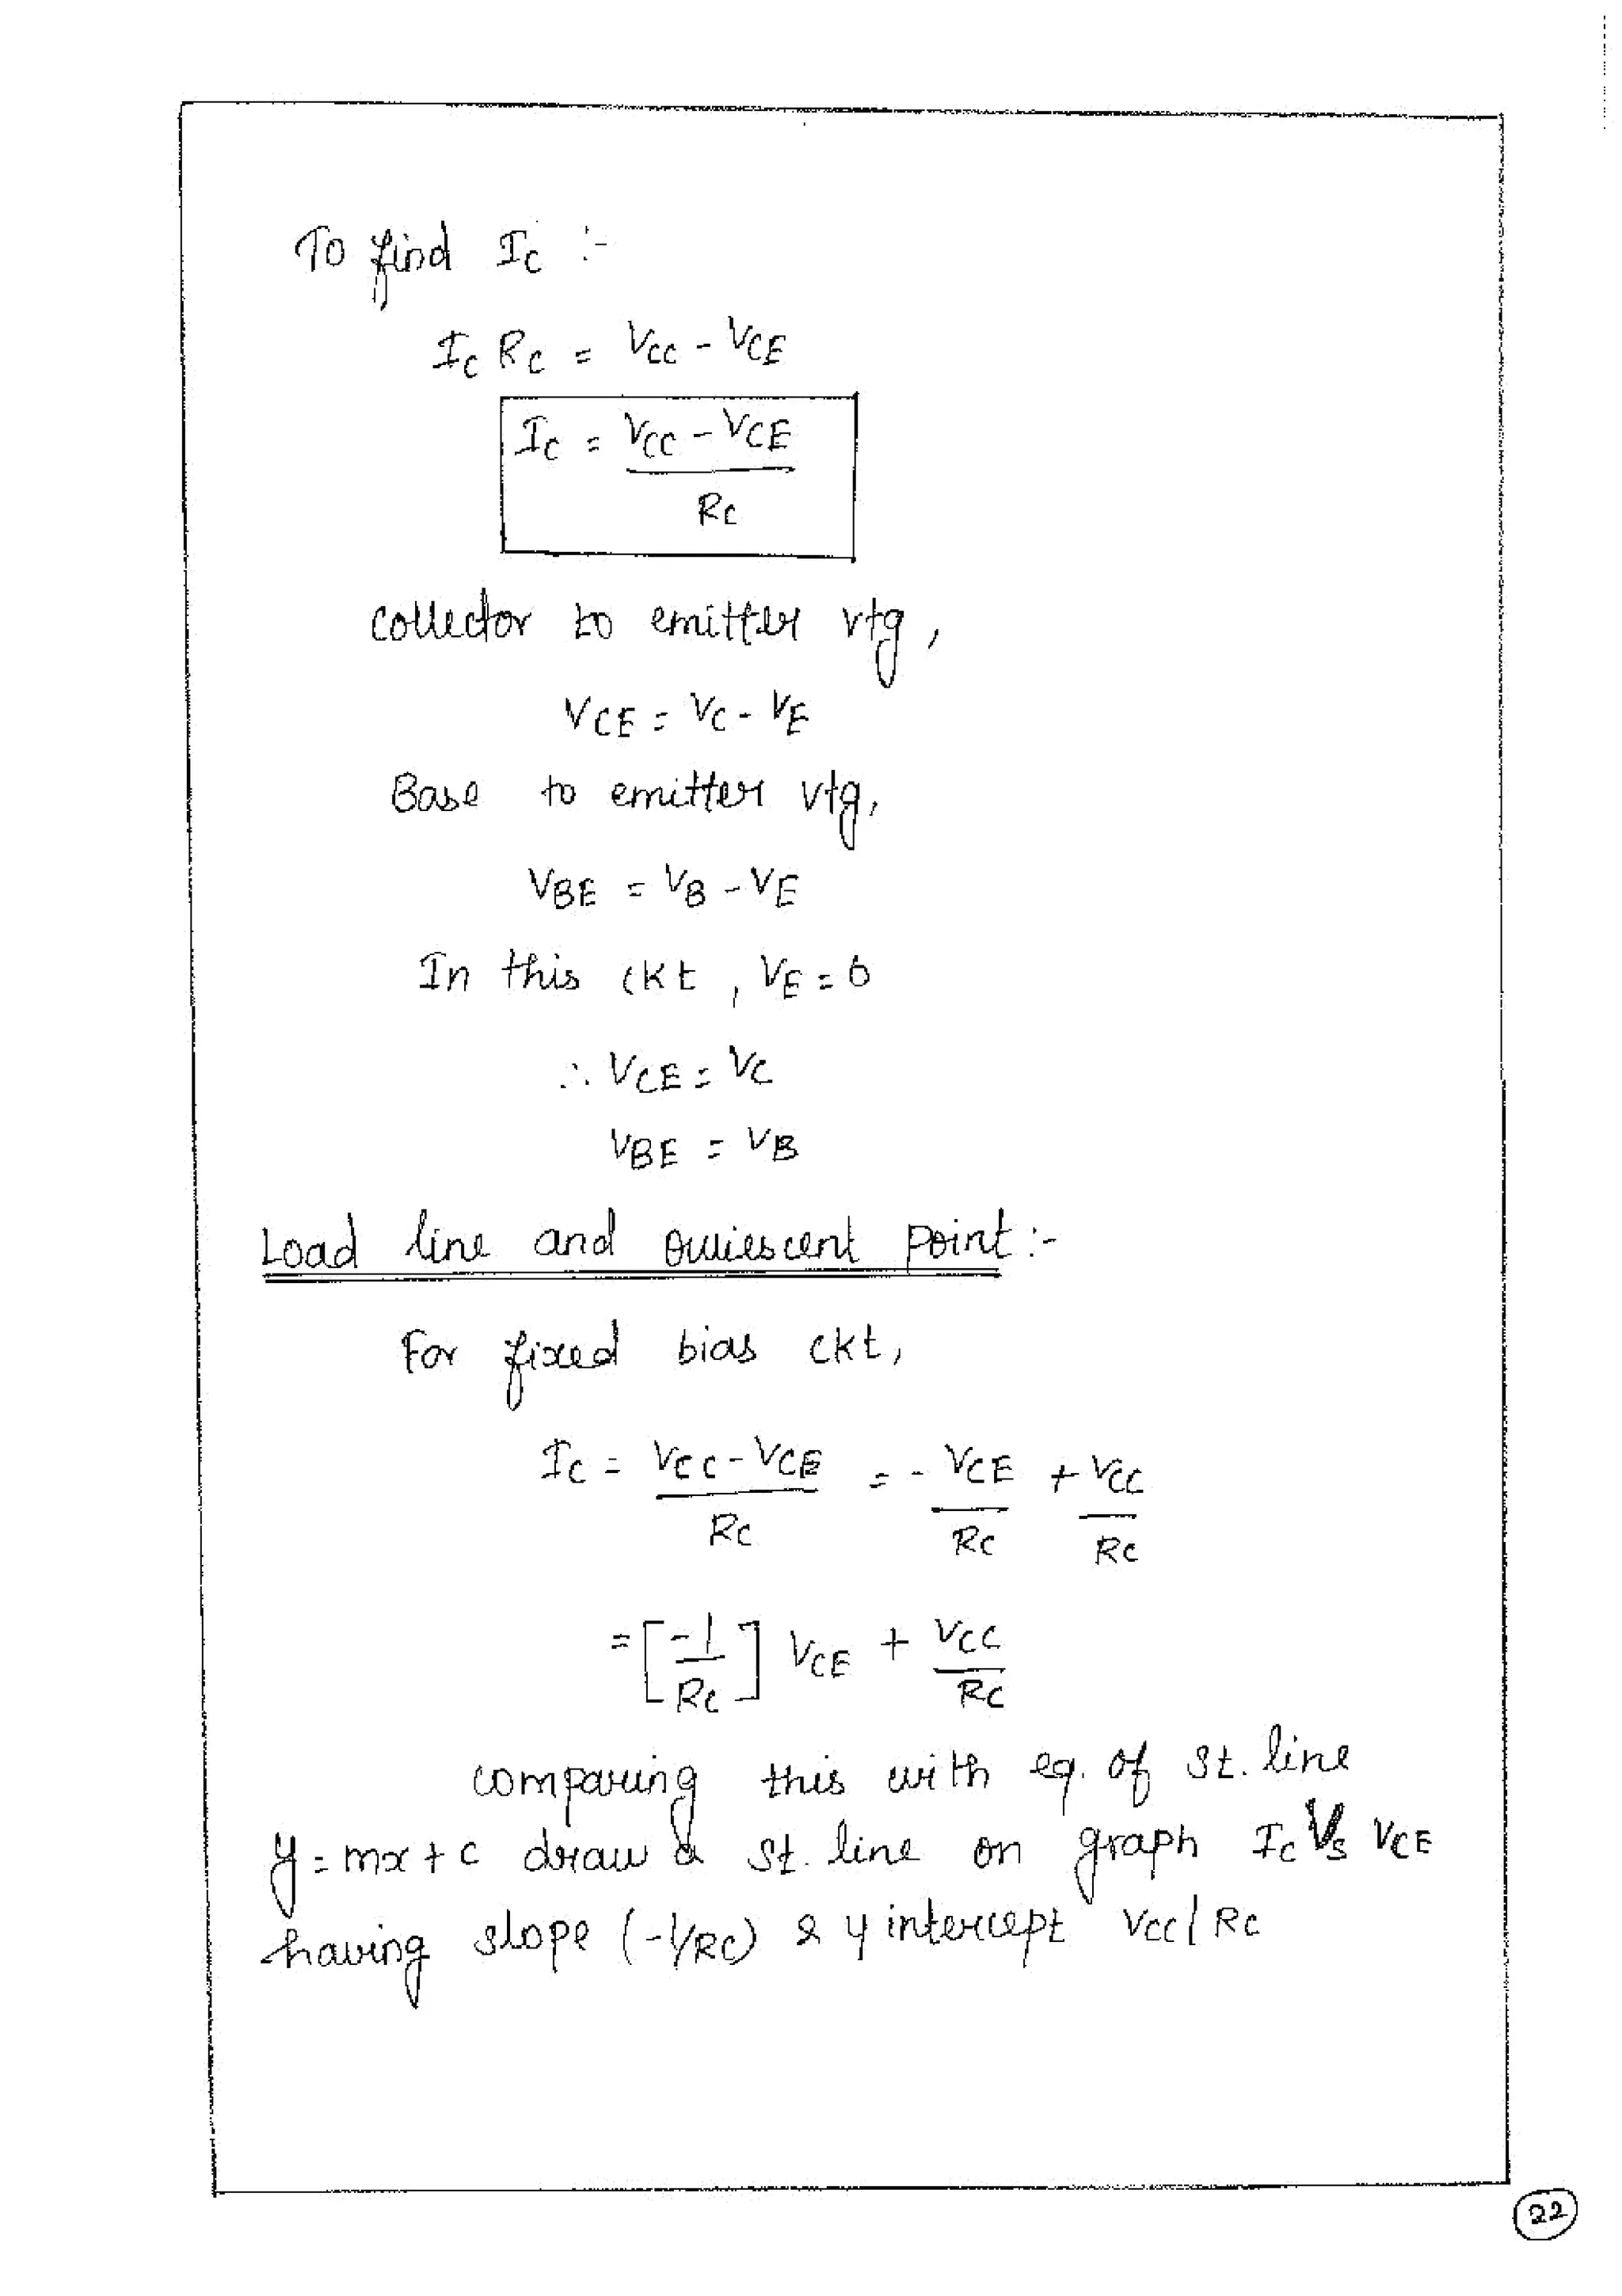 To find Ic :-
Ic Rc = Vcc - VCE
Ic = Vcc - VCE
Rc
collector to emitter vtg,
VCE = Vc - VE
Base to emitter vtg,
VBE = VB - VE
In this ckt, VE = 0
∴ VCE = Vc
VBE = VB
Load line and Quiescent point :-
For fixed bias ckt,
Ic = Vcc - VCE = - VCE + Vcc
Rc Rc Rc
= [-1/Rc] VCE + Vcc/Rc
comparing this with eq. of st. line
y = mx + c draw a st. line on graph Ic Vs VCE
having slope (-1/Rc) & y intercept Vcc/Rc
22